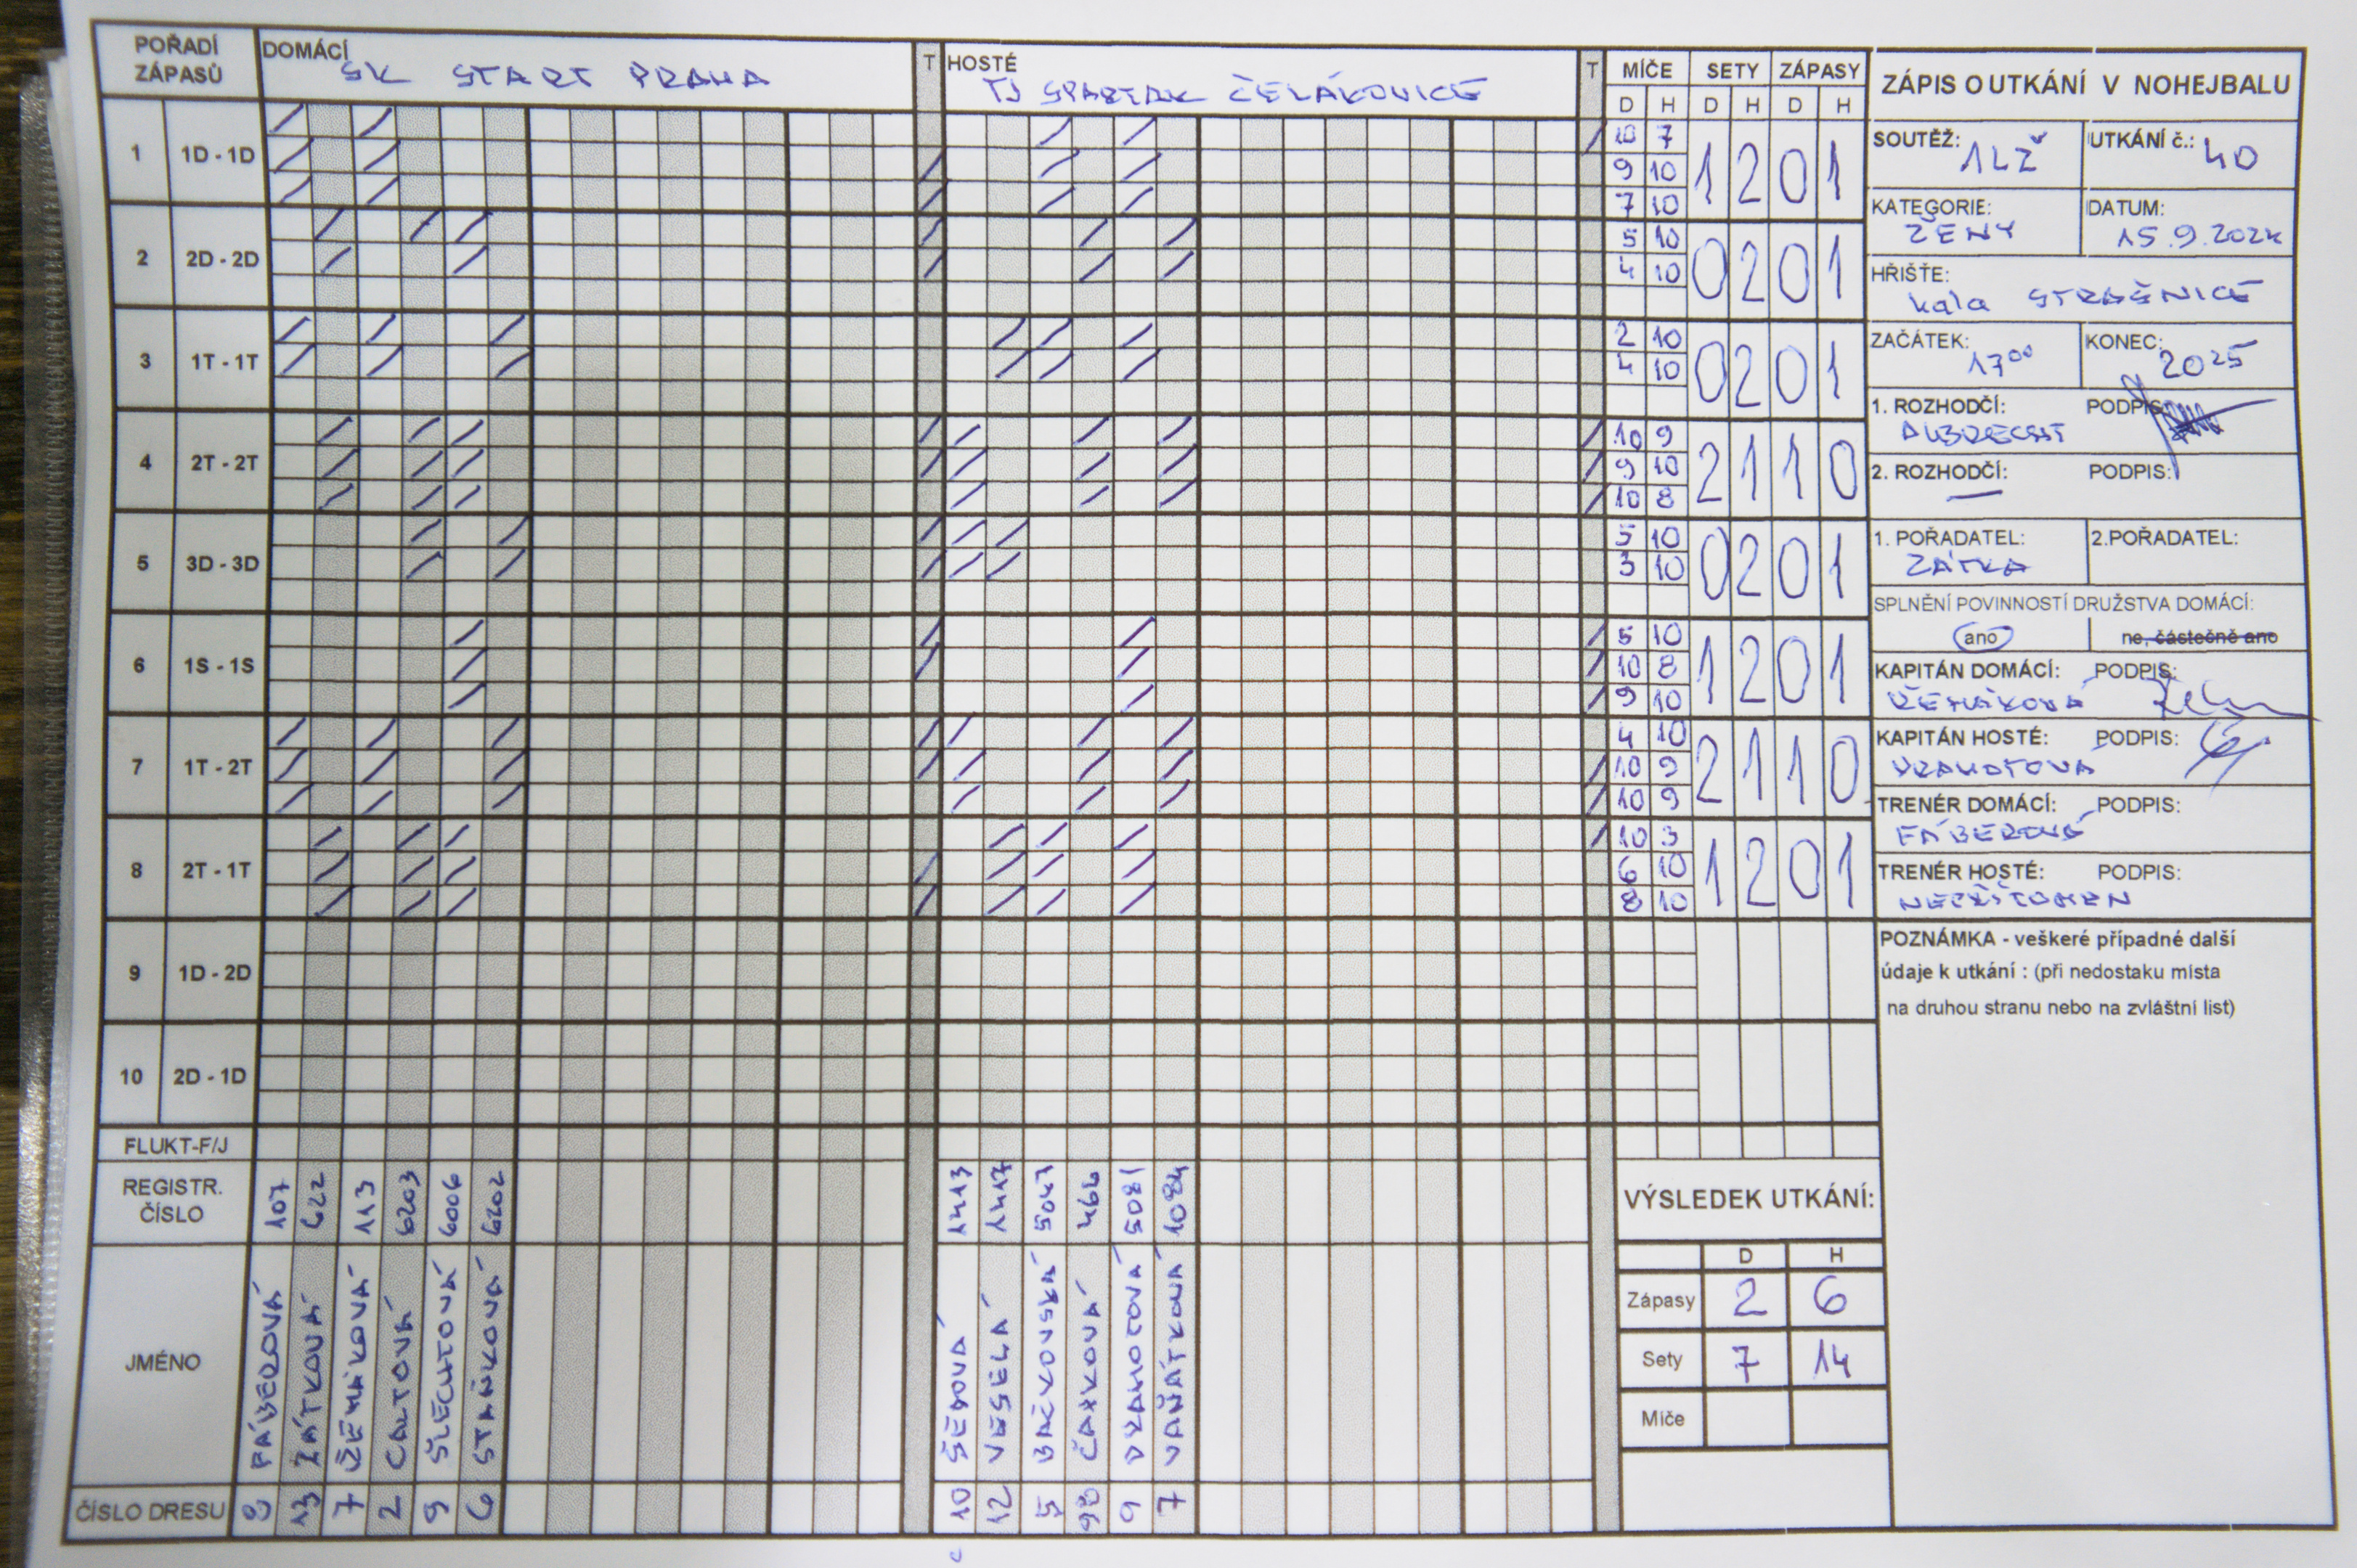 POŘADÍ ZÁPASŮ DOMÁCÍ SK START PRAHA T HOSTÉ TJ SPARTAK ČELÁKOVICE T MÍČE SETY ZÁPASY
D H D H D H
1 1D - 1D
10 7
9 10
7 10
1 2 0 1
2 2D - 2D
5 10
4 10
0 2 0 1
3 1T - 1T
2 10
4 10
0 2 0 1
4 2T - 2T
10 9
9 10
10 8
2 1 1 0
5 3D - 3D
5 10
3 10
0 2 0 1
6 1S - 1S
5 10
10 8
9 10
1 2 0 1
7 1T - 2T
4 10
10 9
10 9
2 1 1 0
8 2T - 1T
10 3
6 10
8 10
1 2 0 1
9 1D - 2D
10 2D - 1D
FLUKT-F/J
REGISTR. ČÍSLO 107 622 113 6203 6006 6202 1413 1417 5047 466 5081 1084
JMÉNO FÁBEROVÁ ZÁTKOVÁ ŽEMÁKOVÁ CALTOVÁ ŠLECHTOVÁ STAŇKOVÁ ŠÉDOVÁ VESELÁ BAČKOVSKÁ ČAPKOVÁ DRAHOTOVÁ VAŇÁTKOVÁ
ČÍSLO DRESU 8 13 7 2 9 6 10 12 5 98 9 7
ZÁPIS O UTKÁNÍ V NOHEJBALU
SOUTĚŽ: 1LŽ UTKÁNÍ č.: 40
KATEGORIE: ŽENY DATUM: 15.9.2024
HŘIŠTĚ: hala STRAŠNICE
ZAČÁTEK: 17⁰⁰ KONEC: 20²⁵
1. ROZHODČÍ: ALBRECHT PODPIS:
2. ROZHODČÍ: — PODPIS:
1. POŘADATEL: ZÁTKA 2.POŘADATEL:
SPLNĚNÍ POVINNOSTÍ DRUŽSTVA DOMÁCÍ:
ano ne, částečně ano
KAPITÁN DOMÁCÍ: PODPIS:
ŽEMÁKOVÁ
KAPITÁN HOSTÉ: PODPIS:
DRAHOTOVÁ
TRENÉR DOMÁCÍ: PODPIS:
FÁBEROVÁ
TRENÉR HOSTÉ: PODPIS:
NEPŘÍTOMEN
POZNÁMKA - veškeré případné další
údaje k utkání : (při nedostaku místa
na druhou stranu nebo na zvláštní list)
VÝSLEDEK UTKÁNÍ:
D H
Zápasy 2 6
Sety 7 14
Míče